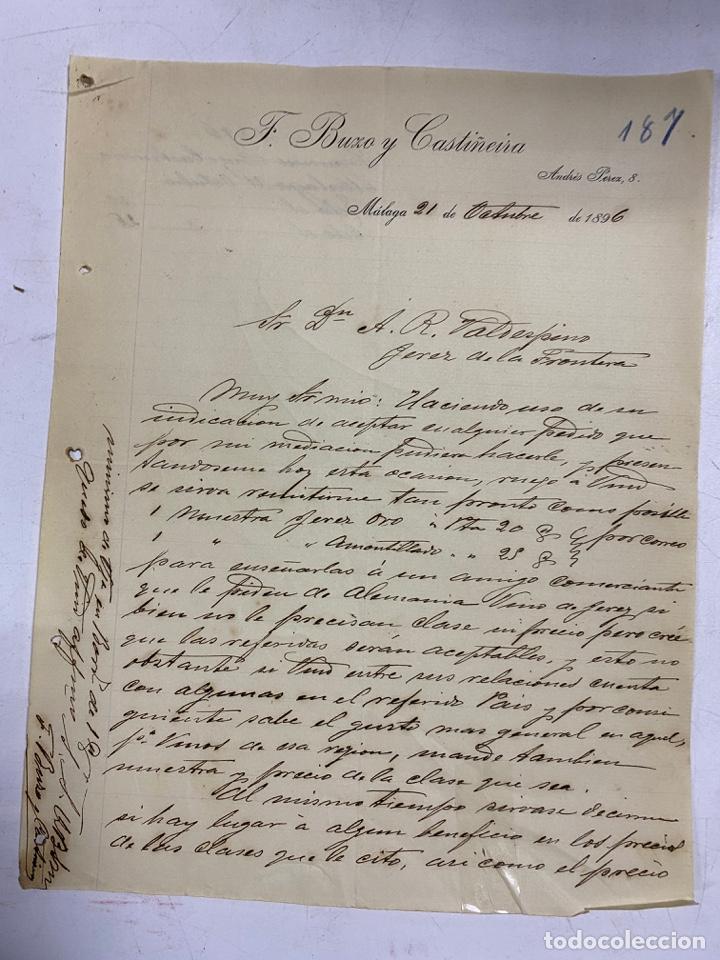 F. Buzo y Castiñeira
187
Andrés Pérez, 8.
Málaga 21 de Octubre de 1896
Sr Dn A. R. Valdespino
Jerez de la Frontera
Muy Sr mio: Haciendo uso de su
indicacion de aceptar cualquier pedido que
por mi mediacion pudiera hacerle, y presen
tandoseme hoy esta ocasion, ruego a Vmd
se sirva remitirme tan pronto como posible
1 muestra Jerez Oro a 20 por correo
1 " " Amontillado " " 25
para enseñarlas á un amigo comerciante
que le piden de Alemania Vino de Jerez si
bien no le precisan clase ni precio pero cree
que las referidas serán aceptables, y esto no
obstante si Vmd entre sus relaciones cuenta
con algunas en el referido Pais y por consi
guiente sabe el gusto mas general en aquel,
pa Vinos de esa region, mande tambien
muestra y precio de la clase que sea.
Al mismo tiempo sirvase decirme
si hay lugar á algun beneficio en los precios
de las clases que le cito, asi como el precio
minimo de
Quedo de Vmd afmo
todocoleccion
todocoleccion.net